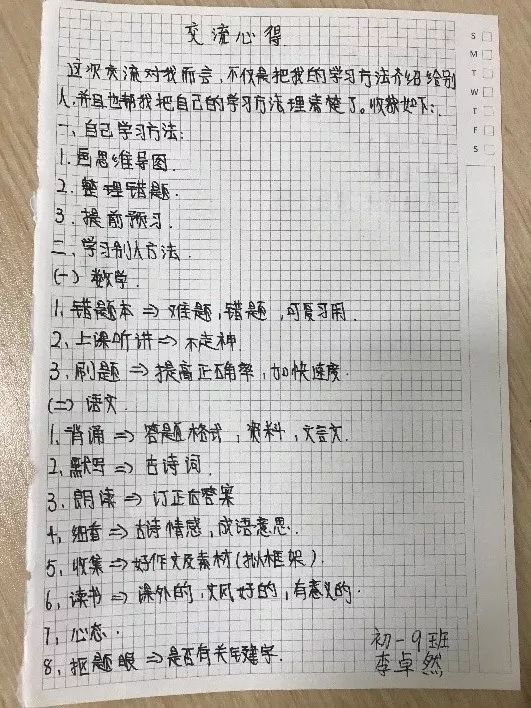 交流心得
S
M
T
W
T
F
S
这次交流对我而言，不仅是把我的学习方法介绍给别
人，并且也帮我把自己的学习方法理清楚了。收获如下：
一、自己学习方法：
1. 画思维导图.
2. 整理错题.
3. 提前预习.
二、学习别人方法.
(一) 数学.
1. 错题本 => 难题，错题，可复习用.
2. 上课听讲 => 不走神
3. 刷题 => 提高正确率，加快速度.
(二) 语文.
1. 背诵 => 答题格式，资料，文言文.
2. 默写 => 古诗词.
3. 朗读 => 订正的答案
4. 细看 => 古诗情感，成语意思.
5. 收集 => 好作文及素材(拟框架).
6. 读书 => 课外的，文风好的，有意义的.
7. 心态.
8. 抠题眼 => 是否有关键字.
初一9班
李卓然